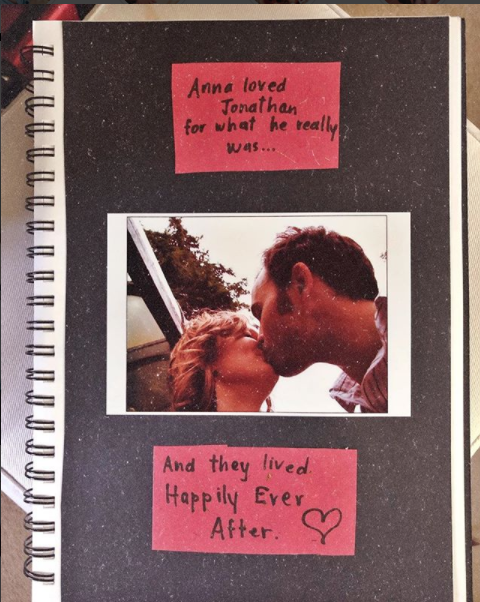 Anna loved
Jonathan
for what he really
was...
And they lived
Happily Ever
After.